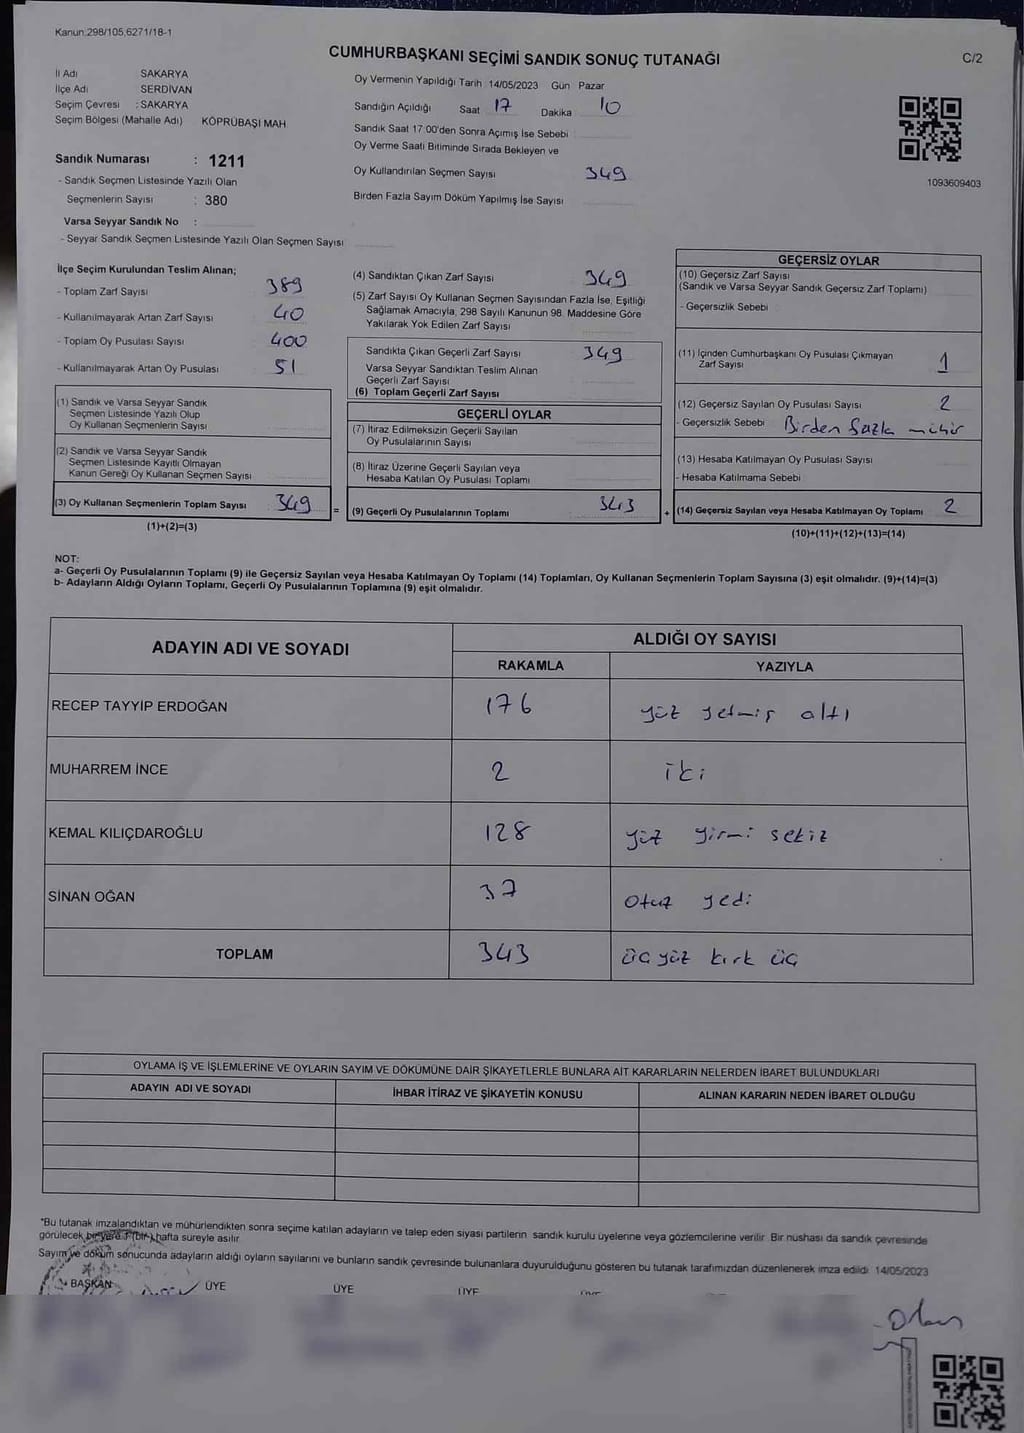 Kanun:298/105,6271/18-1
CUMHURBAŞKANI SEÇİMİ SANDIK SONUÇ TUTANAĞI
C/2
İl Adı SAKARYA
İlçe Adı SERDİVAN
Seçim Çevresi : SAKARYA
Seçim Bölgesi (Mahalle Adı) KÖPRÜBAŞI MAH
Sandık Numarası : 1211
- Sandık Seçmen Listesinde Yazılı Olan
Seçmenlerin Sayısı : 380
Varsa Seyyar Sandık No :
- Seyyar Sandık Seçmen Listesinde Yazılı Olan Seçmen Sayısı
Oy Vermenin Yapıldığı Tarih 14/05/2023 Gün Pazar
Sandığın Açıldığı Saat 17 Dakika 10
Sandık Saat 17:00'den Sonra Açımış İse Sebebi
Oy Verme Saati Bitiminde Sırada Bekleyen ve
Oy Kullandırılan Seçmen Sayısı 349
Birden Fazla Sayım Döküm Yapılmış İse Sayısı
1093609403
İlçe Seçim Kurulundan Teslim Alınan;
- Toplam Zarf Sayısı 389
- Kullanılmayarak Artan Zarf Sayısı 40
- Toplam Oy Pusulası Sayısı 400
- Kullanılmayarak Artan Oy Pusulası 51
(1) Sandık ve Varsa Seyyar Sandık
Seçmen Listesinde Yazılı Olup
Oy Kullanan Seçmenlerin Sayısı
(2) Sandık ve Varsa Seyyar Sandık
Seçmen Listesinde Kayıtlı Olmayan
Kanun Gereği Oy Kullanan Seçmen Sayısı
(3) Oy Kullanan Seçmenlerin Toplam Sayısı 349 =
(1)+(2)=(3)
(4) Sandıktan Çıkan Zarf Sayısı 349
(5) Zarf Sayısı Oy Kullanan Seçmen Sayısından Fazla İse, Eşitliği
Sağlamak Amacıyla, 298 Sayılı Kanunun 98. Maddesine Göre
Yakılarak Yok Edilen Zarf Sayısı
Sandıkta Çıkan Geçerli Zarf Sayısı 349
Varsa Seyyar Sandıktan Teslim Alınan
Geçerli Zarf Sayısı
(6) Toplam Geçerli Zarf Sayısı
GEÇERLİ OYLAR
(7) İtiraz Edilmeksizin Geçerli Sayılan
Oy Pusulalarının Sayısı
(8) İtiraz Üzerine Geçerli Sayılan veya
Hesaba Katılan Oy Pusulası Toplamı
(9) Geçerli Oy Pusulalarının Toplamı 343 +
GEÇERSİZ OYLAR
(10) Geçersiz Zarf Sayısı
(Sandık ve Varsa Seyyar Sandık Geçersiz Zarf Toplamı)
- Geçersizlik Sebebi
(11) İçinden Cumhurbaşkanı Oy Pusulası Çıkmayan
Zarf Sayısı 1
(12) Geçersiz Sayılan Oy Pusulası Sayısı 2
- Geçersizlik Sebebi Birden fazla mühür
(13) Hesaba Katılmayan Oy Pusulası Sayısı
- Hesaba Katılmama Sebebi
(14) Geçersiz Sayılan veya Hesaba Katılmayan Oy Toplamı 2
(10)+(11)+(12)+(13)=(14)
NOT:
a- Geçerli Oy Pusulalarının Toplamı (9) ile Geçersiz Sayılan veya Hesaba Katılmayan Oy Toplamı (14) Toplamları, Oy Kullanan Seçmenlerin Toplam Sayısına (3) eşit olmalıdır. (9)+(14)=(3)
b- Adayların Aldığı Oyların Toplamı, Geçerli Oy Pusulalarının Toplamına (9) eşit olmalıdır.
ADAYIN ADI VE SOYADI ALDIĞI OY SAYISI
RAKAMLA YAZIYLA
RECEP TAYYİP ERDOĞAN 176 yüz yetmiş altı
MUHARREM İNCE 2 iki
KEMAL KILIÇDAROĞLU 128 yüz yirmi sekiz
SİNAN OĞAN 37 otuz yedi
TOPLAM 343 üç yüz kırk üç
OYLAMA İŞ VE İŞLEMLERİNE VE OYLARIN SAYIM VE DÖKÜMÜNE DAİR ŞİKAYETLERLE BUNLARA AİT KARARLARIN NELERDEN İBARET BULUNDUKLARI
ADAYIN ADI VE SOYADI İHBAR İTİRAZ VE ŞİKAYETİN KONUSU ALINAN KARARIN NEDEN İBARET OLDUĞU
*Bu tutanak imzalandıktan ve mühürlendikten sonra seçime katılan adayların ve talep eden siyasi partilerin sandık kurulu üyelerine veya gözlemcilerine verilir. Bir nushası da sandık çevresinde
görülecek bir yere 1 (bir) hafta süreyle asılır
Sayım ve döküm sonucunda adayların aldığı oyların sayılarını ve bunların sandık çevresinde bulunanlara duyurulduğunu gösteren bu tutanak tarafımızdan düzenlenerek imza edildi 14/05/2023
BAŞKAN ÜYE ÜYE ÜYE